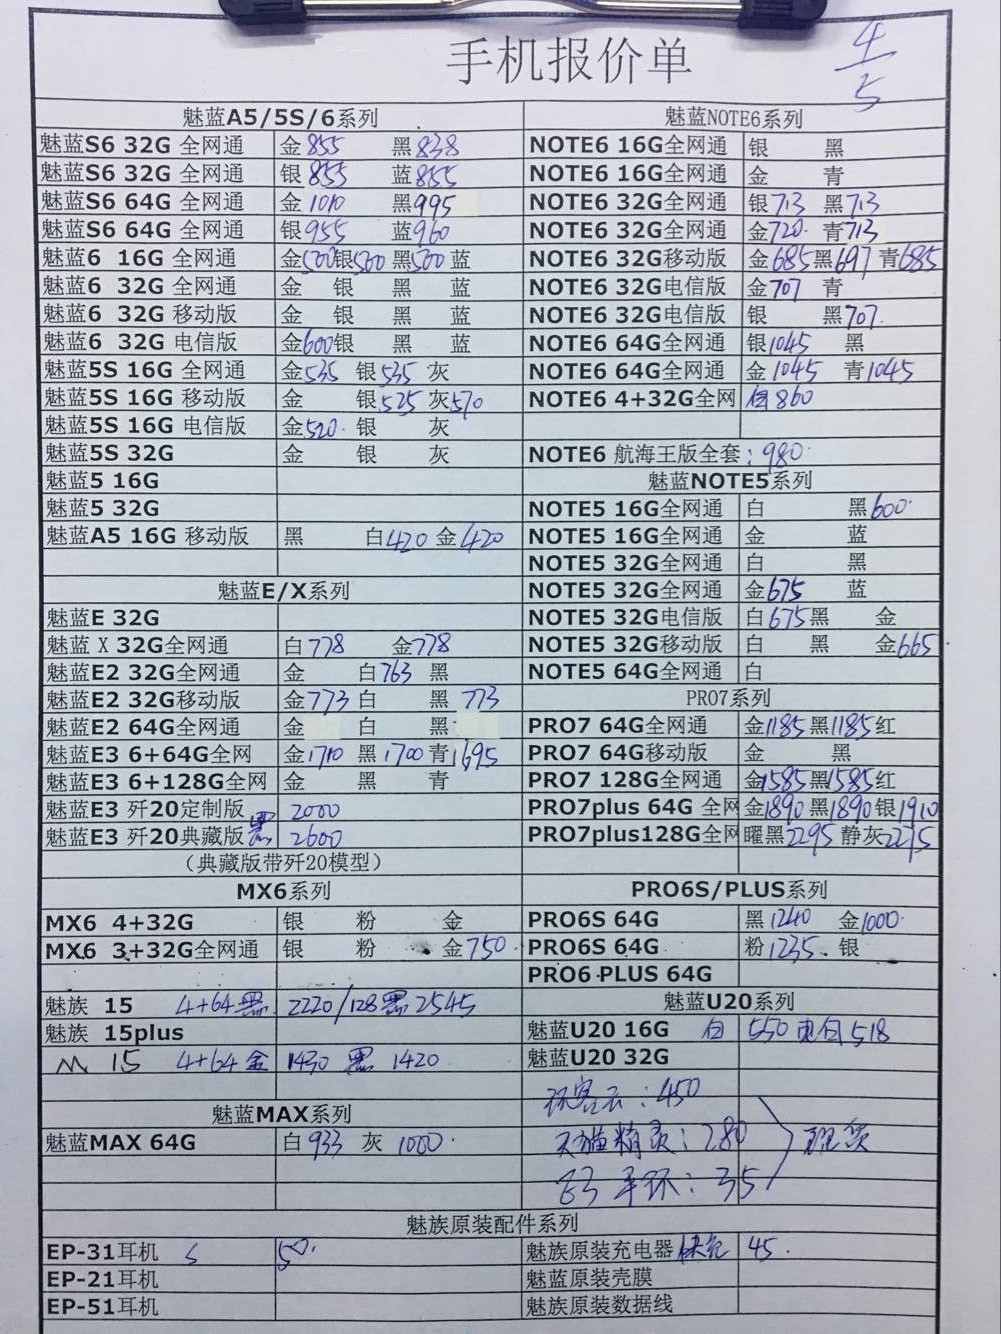 手机报价单
4/5
魅蓝A5/5S/6系列
魅蓝S6 32G 全网通 金855 黑838
魅蓝S6 32G 全网通 银855 蓝855
魅蓝S6 64G 全网通 金1010 黑995
魅蓝S6 64G 全网通 银955 蓝960
魅蓝6 16G 全网通 金500银500 黑500 蓝
魅蓝6 32G 全网通 金 银 黑 蓝
魅蓝6 32G 移动版 金 银 黑 蓝
魅蓝6 32G 电信版 金600银 黑 蓝
魅蓝5S 16G 全网通 金535 银535 灰
魅蓝5S 16G 移动版 金 银525 灰570
魅蓝5S 16G 电信版 金520 银 灰
魅蓝5S 32G 金 银 灰
魅蓝5 16G
魅蓝5 32G
魅蓝A5 16G 移动版 黑 白420 金420
魅蓝E/X系列
魅蓝E 32G
魅蓝 X 32G全网通 白778 金778
魅蓝E2 32G全网通 金 白763 黑
魅蓝E2 32G移动版 金773 白 黑773
魅蓝E2 64G全网通 金 白 黑
魅蓝E3 6+64G全网 金1710 黑1700 青1695
魅蓝E3 6+128G全网 金 黑 青
魅蓝E3 歼20定制版 2000
魅蓝E3 歼20典藏版 黑 2600
（典藏版带歼20模型）
MX6系列
MX6 4+32G 银 粉 金
MX6 3+32G全网通 银 粉 金750
魅族 15 4+64黑 2220/128黑2545
魅族 15plus
M 15 4+64金 1430 黑 1420
魅蓝MAX系列
魅蓝MAX 64G 白933 灰 1000
魅蓝NOTE6系列
NOTE6 16G全网通 银 黑
NOTE6 16G全网通 金 青
NOTE6 32G全网通 银713 黑713
NOTE6 32G全网通 金720 青713
NOTE6 32G移动版 金685黑697 青685
NOTE6 32G电信版 金707 青
NOTE6 32G电信版 银 黑707
NOTE6 64G全网通 银1045 黑
NOTE6 64G全网通 金1045 青1045
NOTE6 4+32G全网 白860
NOTE6 航海王版全套：980
魅蓝NOTE5系列
NOTE5 16G全网通 白 黑600
NOTE5 16G全网通 金 蓝
NOTE5 32G全网通 白 黑
NOTE5 32G全网通 金675 蓝
NOTE5 32G电信版 白675黑 金
NOTE5 32G移动版 白 黑 金665
NOTE5 64G全网通 白
PRO7系列
PRO7 64G全网通 金1185黑1185红
PRO7 64G移动版 金 黑
PRO7 128G全网通 金1585黑1585红
PRO7plus 64G 全网 金1890黑1890银1910
PRO7plus128G全网 曜黑2295 静灰2275
PRO6S/PLUS系列
PRO6S 64G 黑1240 金1000
PRO6S 64G 粉1235 银
PRO6 PLUS 64G
魅蓝U20系列
魅蓝U20 16G 白 550 电白518
魅蓝U20 32G
玩客云：450
天猫精灵：280 现货
手环：35
魅族原装配件系列
EP-31耳机 50
EP-21耳机
EP-51耳机
魅族原装充电器 快充 45
魅蓝原装壳膜
魅族原装数据线